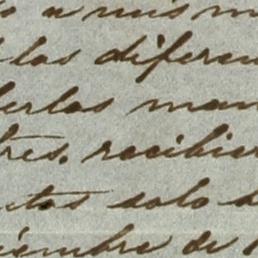 o a mis m
las diferen
erlas man
tres. recibier
ntos solo s
iembre de 1